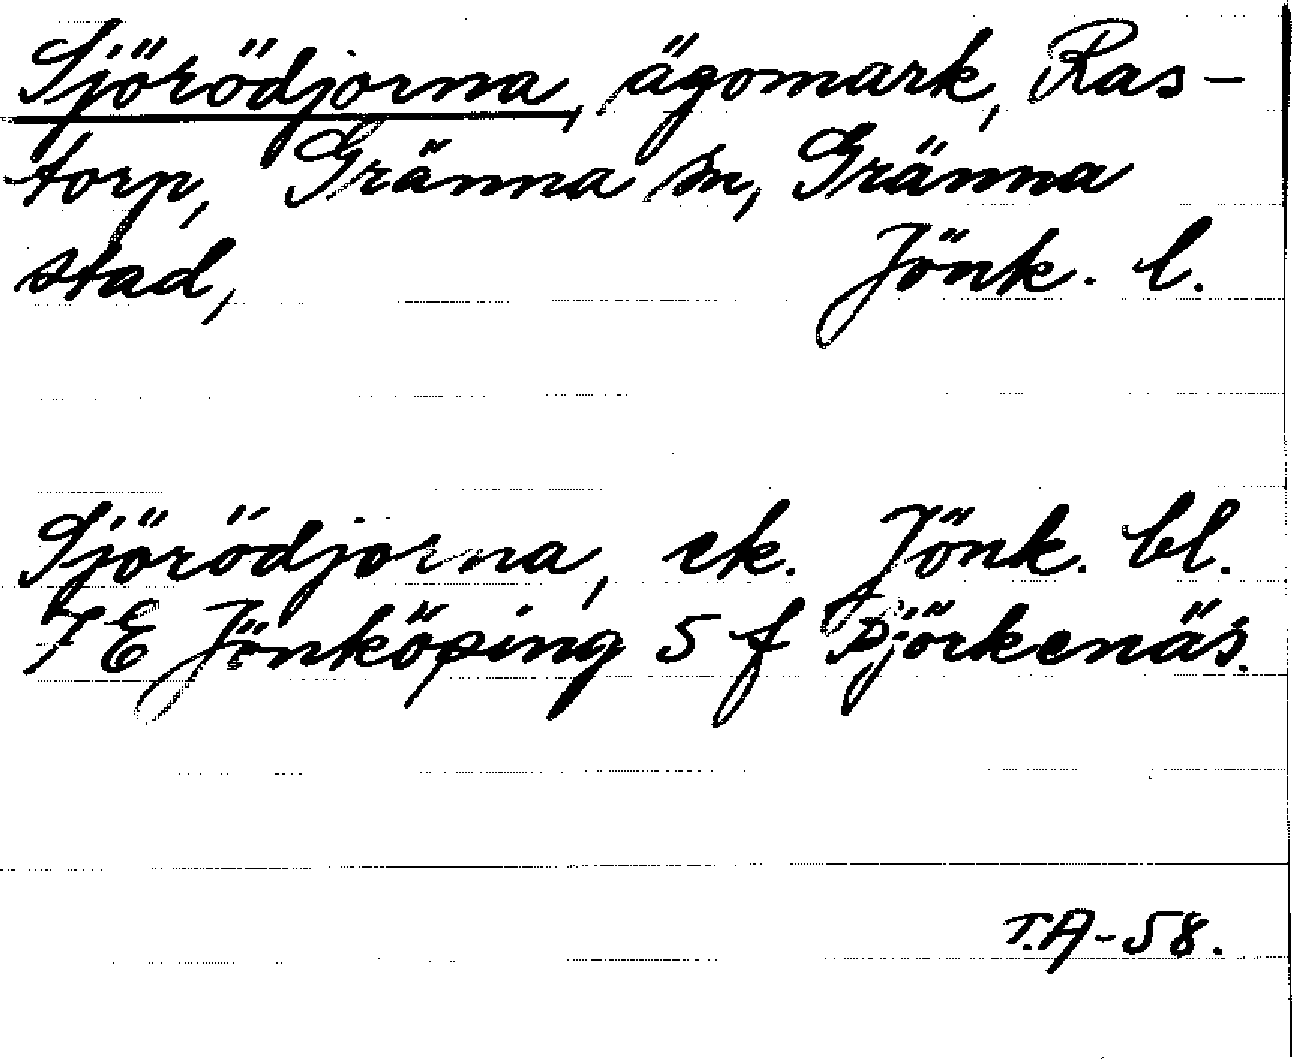 Sjörödjorna, ägomark, Ras-
torp, Gränna sn, Gränna
stad, Jönk. l.
Sjörödjorna, ek. Jönk. bl.
7E Jönköping 5 f Björkenäs.
T.A-58.